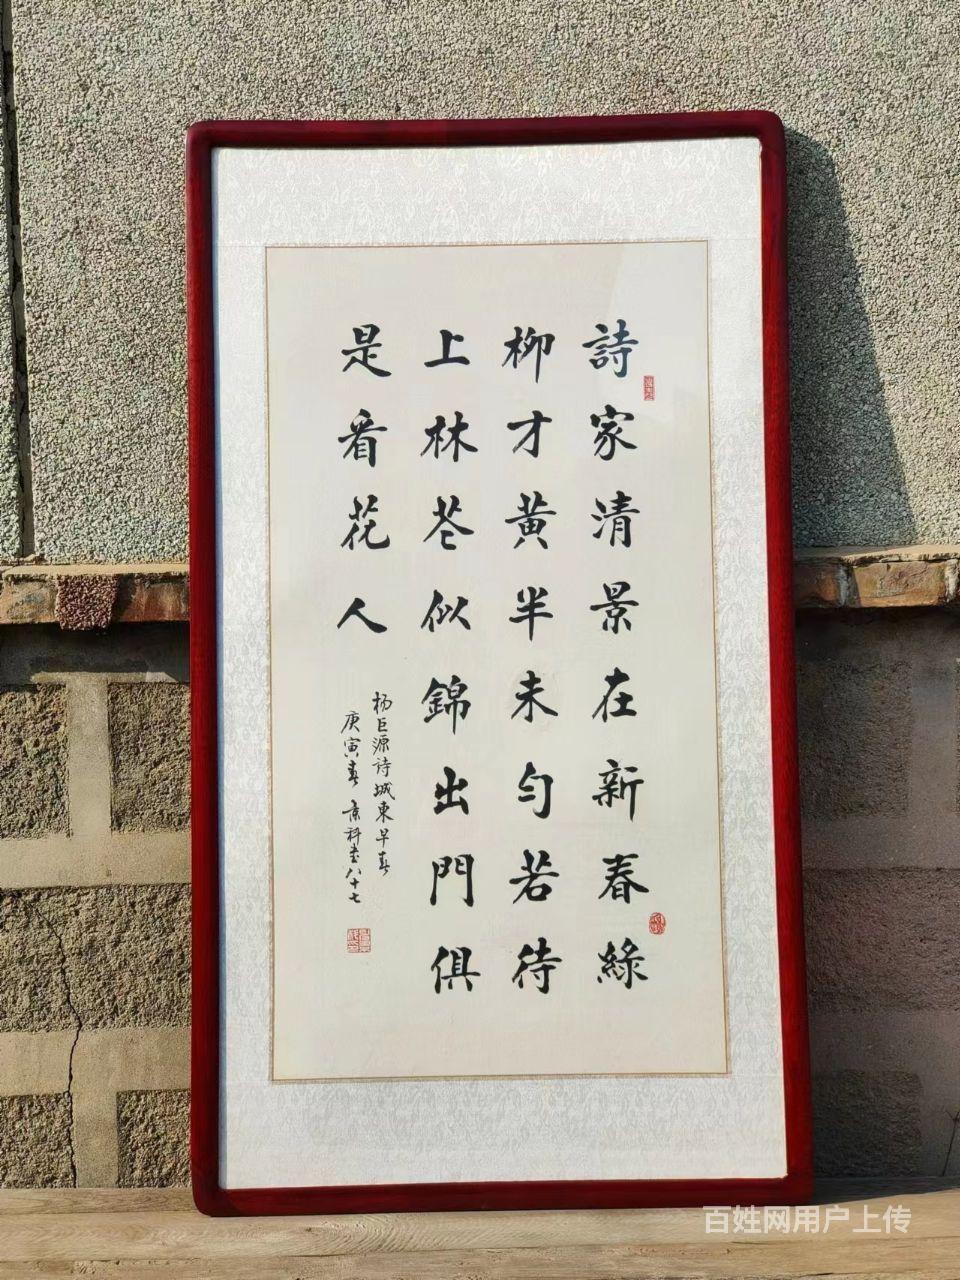 詩家清景在新春綠
柳才黃半未勻若待
上林苍似錦出門俱
是看花人
杨巨源诗城東早春
庚寅春 景科书八十七
百姓网用户上传